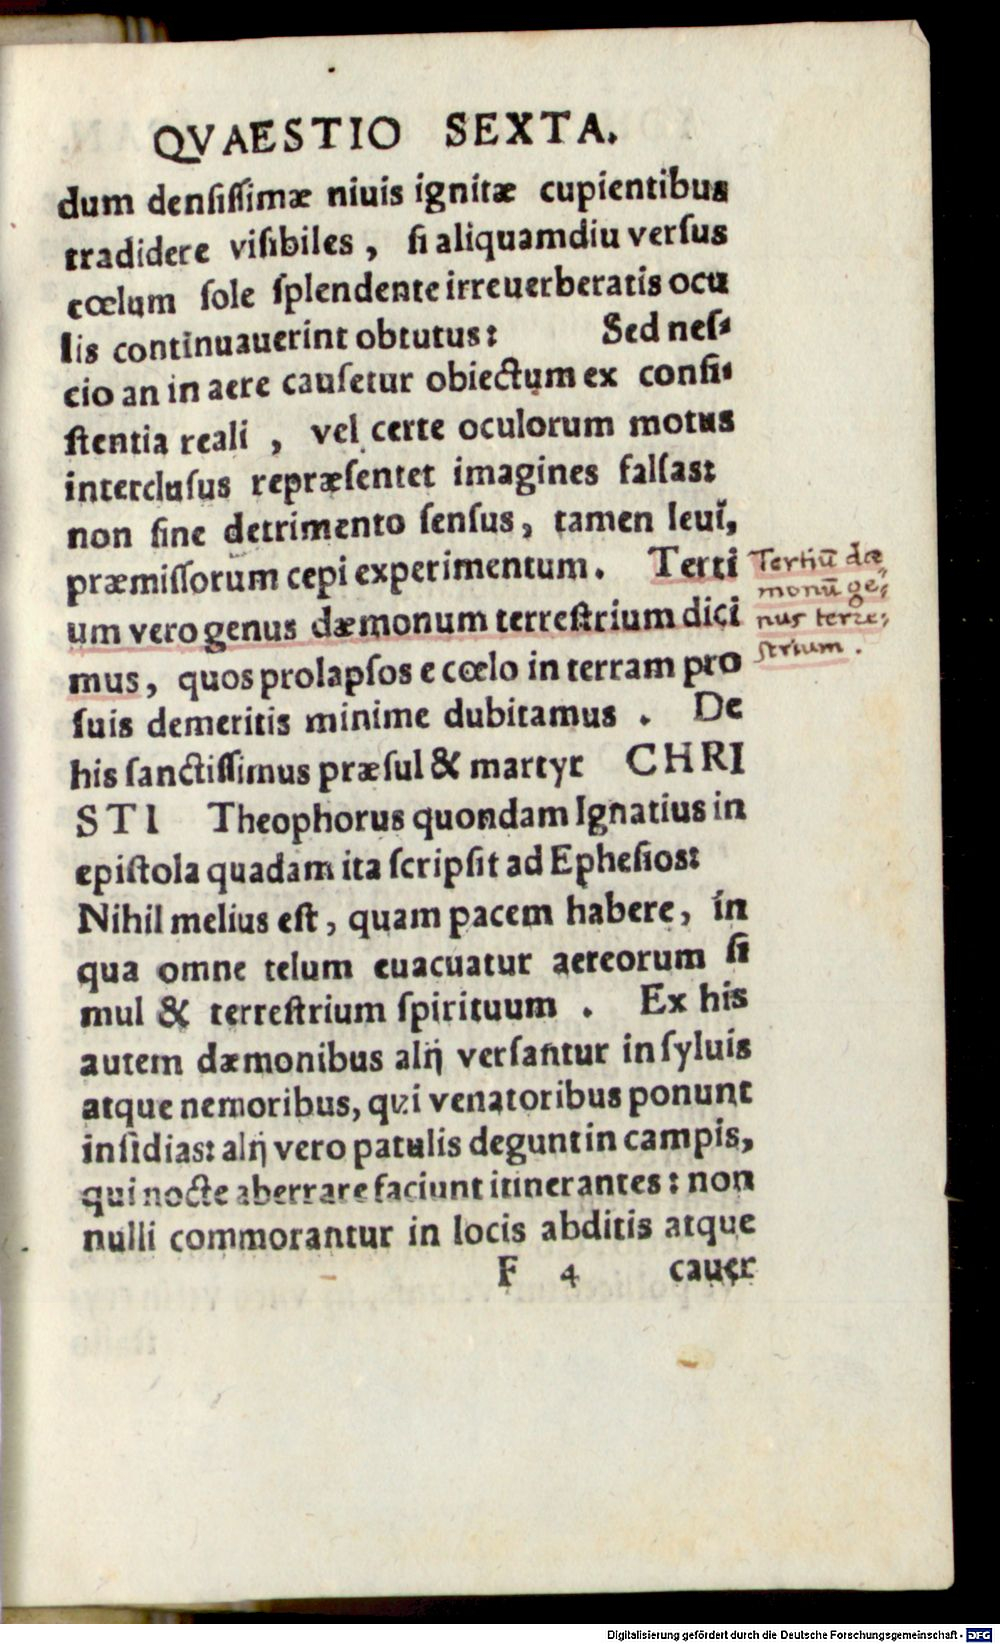 QVAESTIO SEXTA.
dum denſiſſimæ niuis ignitæ cupientibus
tradidere viſibiles, ſi aliquamdiu verſus
cœlum ſole ſplendente irreuerberatis ocu
lis continuauerint obtutus: Sed neſ⸗
cio an in aere cauſetur obiectum ex conſi⸗
ſtentia reali, vel certe oculorum motus
intercluſus repræſentet imagines falſas:
non ſine detrimento ſenſus, tamen leui,
præmiſſorum cepi experimentum. Terti
um vero genus dæmonum terreſtrium dici
mus, quos prolapſos e cœlo in terram pro
ſuis demeritis minime dubitamus. De
his ſanctiſſimus præſul & martyr CHRI
STI Theophorus quondam Ignatius in
epiſtola quadam ita ſcripſit ad Epheſios:
Nihil melius eſt, quam pacem habere, in
qua omne telum euacuatur aereorum ſi
mul & terreſtrium ſpirituum. Ex his
autem dæmonibus alij verſantur in ſyluis
atque nemoribus, qui venatoribus ponunt
inſidias: alij vero patulis degunt in campis,
qui nocte aberrare faciunt itinerantes: non
nulli commorantur in locis abditis atque
F 4 cauer
Tertiū dæ⸗
monū ge⸗
nus terre⸗
strium.
Digitalisierung gefördert durch die Deutsche Forschungsgemeinschaft - DFG